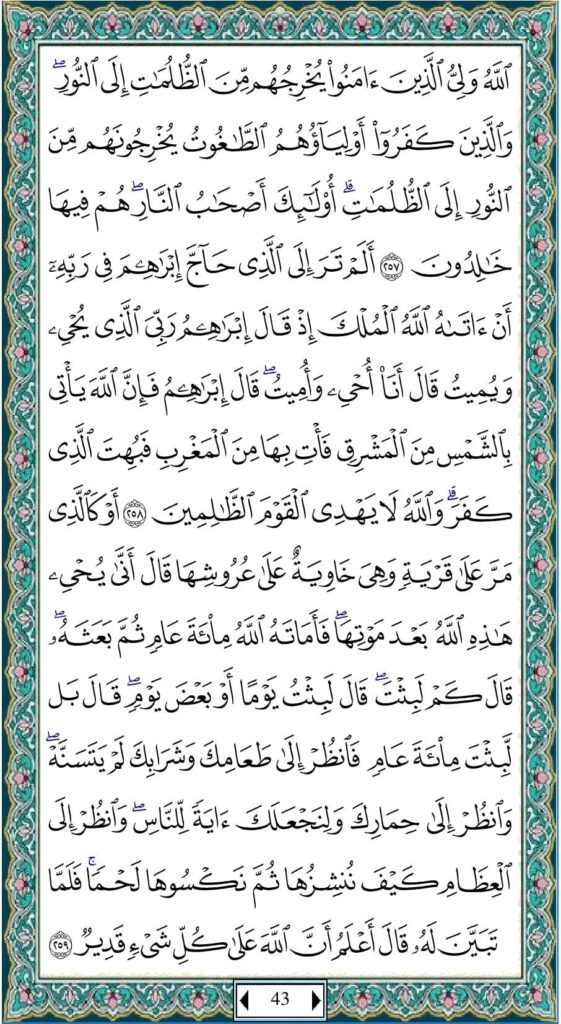 ٱللَّهُ وَلِىُّ ٱلَّذِينَ ءَامَنُوا۟ يُخْرِجُهُم مِّنَ ٱلظُّلُمَـٰتِ إِلَى ٱلنُّورِ ۖ
وَٱلَّذِينَ كَفَرُوٓا۟ أَوْلِيَآؤُهُمُ ٱلطَّـٰغُوتُ يُخْرِجُونَهُم مِّنَ
ٱلنُّورِ إِلَى ٱلظُّلُمَـٰتِ ۗ أُو۟لَـٰٓئِكَ أَصْحَـٰبُ ٱلنَّارِ ۖ هُمْ فِيهَا
خَـٰلِدُونَ ٢٥٧ أَلَمْ تَرَ إِلَى ٱلَّذِى حَآجَّ إِبْرَٰهِـۧمَ فِى رَبِّهِۦٓ
أَنْ ءَاتَىٰهُ ٱللَّهُ ٱلْمُلْكَ إِذْ قَالَ إِبْرَٰهِـۧمُ رَبِّىَ ٱلَّذِى يُحْىِۦ
وَيُمِيتُ قَالَ أَنَا۠ أُحْىِۦ وَأُمِيتُ ۖ قَالَ إِبْرَٰهِـۧمُ فَإِنَّ ٱللَّهَ يَأْتِى
بِٱلشَّمْسِ مِنَ ٱلْمَشْرِقِ فَأْتِ بِهَا مِنَ ٱلْمَغْرِبِ فَبُهِتَ ٱلَّذِى
كَفَرَ ۗ وَٱللَّهُ لَا يَهْدِى ٱلْقَوْمَ ٱلظَّـٰلِمِينَ ٢٥٨ أَوْ كَٱلَّذِى
مَرَّ عَلَىٰ قَرْيَةٍ وَهِىَ خَاوِيَةٌ عَلَىٰ عُرُوشِهَا قَالَ أَنَّىٰ يُحْىِۦ
هَـٰذِهِ ٱللَّهُ بَعْدَ مَوْتِهَا ۖ فَأَمَاتَهُ ٱللَّهُ مِا۟ئَةَ عَامٍ ثُمَّ بَعَثَهُۥ ۖ
قَالَ كَمْ لَبِثْتَ ۖ قَالَ لَبِثْتُ يَوْمًا أَوْ بَعْضَ يَوْمٍ ۖ قَالَ بَل
لَّبِثْتَ مِا۟ئَةَ عَامٍ فَٱنظُرْ إِلَىٰ طَعَامِكَ وَشَرَابِكَ لَمْ يَتَسَنَّهْ ۖ
وَٱنظُرْ إِلَىٰ حِمَارِكَ وَلِنَجْعَلَكَ ءَايَةً لِّلنَّاسِ ۖ وَٱنظُرْ إِلَى
ٱلْعِظَامِ كَيْفَ نُنشِزُهَا ثُمَّ نَكْسُوهَا لَحْمًا ۚ فَلَمَّا
تَبَيَّنَ لَهُۥ قَالَ أَعْلَمُ أَنَّ ٱللَّهَ عَلَىٰ كُلِّ شَىْءٍ قَدِيرٌ ٢٥٩
43